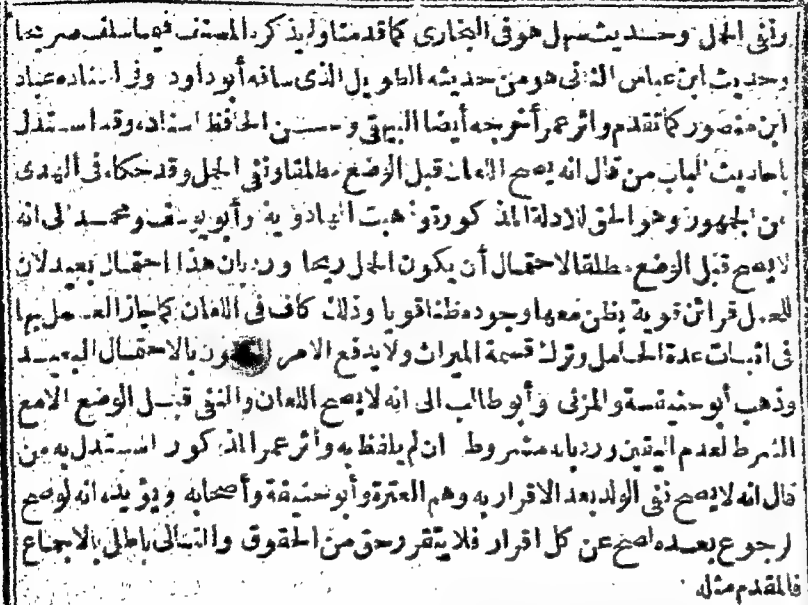 ونفى الحمل وحديث سهل هو فى البخارى كما قدمنا ولم يذكره المصنف فيما سلف صريحا
وحديث ابن عباس الثانى هو من حديثه الطويل الذى ساقه أبو داود وفى اسناده عباد
ابن منصور كما تقدم وأثر عمر أخرجه أيضا البيهقى وحسن الحافظ اسناده وقد استدل
بأحاديث الباب من قال انه يصح اللعان قبل الوضع مطلقا ونفى الحمل وقد حكاه فى الهدى
عن الجمهور وهو الحق للادلة المذكورة وذهبت الهادوية وأبو يوسف ومحمد الى انه
لا يصح قبل الوضع مطلقا لاحتمال أن يكون الحمل ريحا ورد بان هذا احتمال بعيد لان
للحمل قرائن قوية يظن معها وجوده ظنا قويا وذلك كاف فى اللعان كما جاز العمل بها
فى اثبات عدة الحامل وترك قسمة الميراث ولا يدفع الامر بالاحتمال البعيد
وذهب أبو حنيفة والمزنى وأبو طالب الى انه لا يصح اللعان والنفى قبل الوضع الا مع
الشرط لعدم اليقين ورد بانه مشروط ان لم يلفظ به وأثر عمر المذكور استدل به من
قال انه لا يصح نفى الولد بعد الاقرار به وهم العترة وأبو حنيفة وأصحابه ويؤيده انه لو صح
الرجوع بعده لصح عن كل اقرار فلا يتقرر حق من الحقوق والتالى باطل بالاجماع
فالمقدم مثله